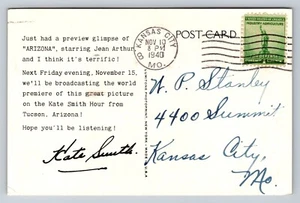 Just had a preview glimpse of
"ARIZONA", starring Jean Arthur,
and I think it's terrific!
Next Friday evening, November 15,
we'll be broadcasting the world
premiere of this great picture
on the Kate Smith Hour from
Tucson, Arizona!
Hope you'll be listening!
Kate Smith.
POST CARD
KANSAS CITY
NOV 10
8 PM
1940
MO.
W. P. Stanley
4400 Summit
Kansas City,
Mo.